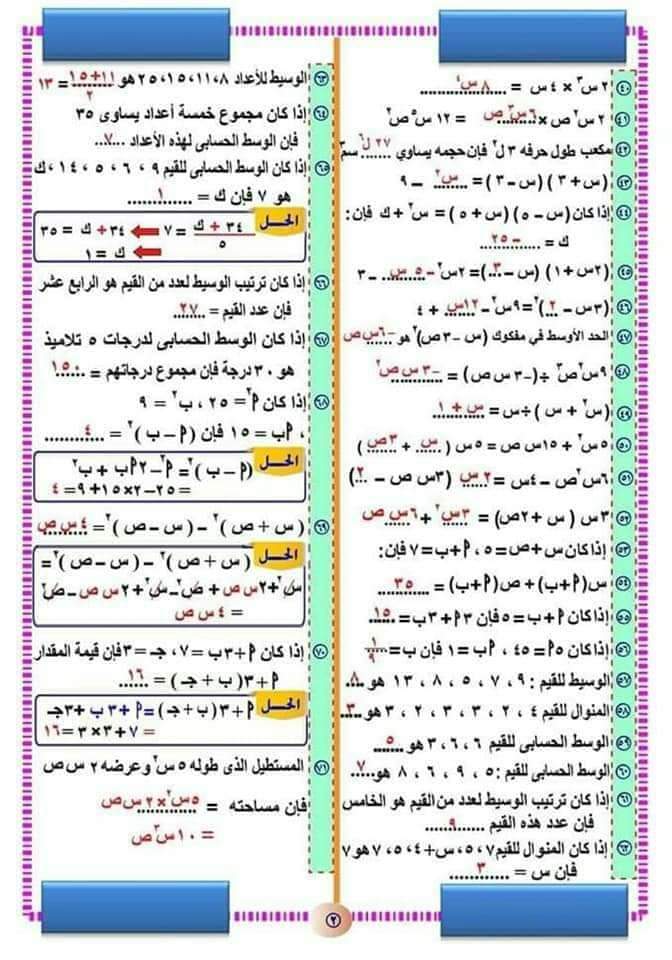 ٤٠ ٢ س٣ × ٤ س = ٨ س٤
٤١ ٢ س٢ ص × ٦ س٣ ص = ١٢ س٥ ص٢
٤٢ مكعب طول حرفه ٣ ل٢ فإن حجمه يساوي ٢٧ ل٦ سم٣
٤٣ (س + ٣) (س – ٣) = س٢ – ٩
٤٤ إذا كان (س – ٥) (س + ٥) = س٢ + ك فإن:
ك = – ٢٥
٤٥ (٢س + ١) (س – ٣) = ٢س٢ – ٥ س – ٣
٤٦ (٣س – ٢)٢ = ٩س٢ – ١٢س + ٤
٤٧ الحد الأوسط في مفكوك (س – ٣ص)٢ هو – ٦س ص
٤٨ ٩س٢ص٣ ÷ (–٣ س ص) = –٣ س ص٢
٤٩ (س٢ + س) ÷ س = س + ١
٥٠ ٥س٢ + ١٥س ص = ٥ س (س + ٣ص)
٥١ ٦س٢ص – ٤س = ٢ س (٣س ص – ٢)
٥٢ ٣س (س + ٢ص) = ٣س٢ + ٦س ص
٥٣ إذا كان س + ص = ٥ ، أ + ب = ٧ فإن:
٥٤ س(أ + ب) + ص(أ + ب) = ٣٥
٥٥ إذا كان أ + ب = ٥ فإن ٣أ + ٣ب = ١٥
٥٦ إذا كان ٥أ = ٤٥ ، أب = ١ فإن ب = ١/٩
٥٧ الوسيط للقيم : ٩ ، ٧ ، ٥ ، ٨ ، ١٣ هو ٨
٥٨ المنوال للقيم ٤ ، ٢ ، ٣ ، ٣ ، ٢ ، ٣ هو ٣
٥٩ الوسط الحسابى للقيم ٦ ، ٦ ، ٣ هو ٥
٦٠ الوسط الحسابى للقيم : ٥ ، ٩ ، ٦ ، ٨ هو ٧
٦١ إذا كان ترتيب الوسيط لعدد من القيم هو الخامس
فإن عدد هذه القيم ٩
٦٢ إذا كان المنوال للقيم ٧ ، ٥ ، س + ٤ ، ٥ ، ٧ هو ٧
فإن س = ٣
٦٣ الوسيط للأعداد ٨ ، ١١ ، ١٥ ، ٢٥ هو (١١ + ١٥)/٢ = ١٣
٦٤ إذا كان مجموع خمسة أعداد يساوى ٣٥
فإن الوسط الحسابى لهذه الأعداد ٧
٦٥ إذا كان الوسط الحسابى للقيم ٩ ، ٦ ، ٥ ، ١٤ ، ك
هو ٧ فإن ك = ١
الحـــل (٣٤ + ك)/٥ = ٧ ⬅ ٣٤ + ك = ٣٥
⬅ ك = ١
٦٦ إذا كان ترتيب الوسيط لعدد من القيم هو الرابع عشر
فإن عدد القيم = ٢٧
٦٧ إذا كان الوسط الحسابى لدرجات ٥ تلاميذ
هو ٣٠ درجة فإن مجموع درجاتهم = ١٥٠
٦٨ إذا كان أ٢ = ٢٥ ، ب٢ = ٩
، أب = ١٥ فإن (أ – ب)٢ = ٤
الحـــل (أ – ب)٢ = أ٢ – ٢أب + ب٢
= ٢٥ – ٢×١٥ + ٩ = ٤
٦٩ (س + ص)٢ – (س – ص)٢ = ٤ س ص
الحـــل (س + ص)٢ – (س – ص)٢ =
س٢ + ٢س ص + ص٢ – س٢ + ٢س ص – ص٢
= ٤ س ص
٧٠ إذا كان أ + ٣ب = ٧ ، جـ = ٣ فإن قيمة المقدار
أ + ٣(ب + جـ) = ١٦
الحـــل أ + ٣(ب + جـ) = أ + ٣ب + ٣جـ
= ٧ + ٣ × ٣ = ١٦
٧١ المستطيل الذى طوله ٥ س٢ وعرضه ٢ س ص
فإن مساحته = ٥س٢ × ٢ س ص
= ١٠ س٣ ص
٢